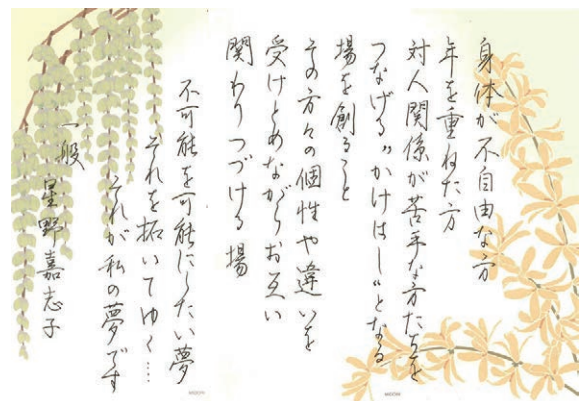 身体が不自由な方
年を重ねた方
対人関係が苦手な方たちを
つなげる〝かけはし〟となる
場を創ること
その方々の個性や違いを
受けとめながらお互い
関わりつづける場
不可能を可能にしたい夢
それを拓いてゆく‥‥
それが私の夢です
一般 星野嘉志子